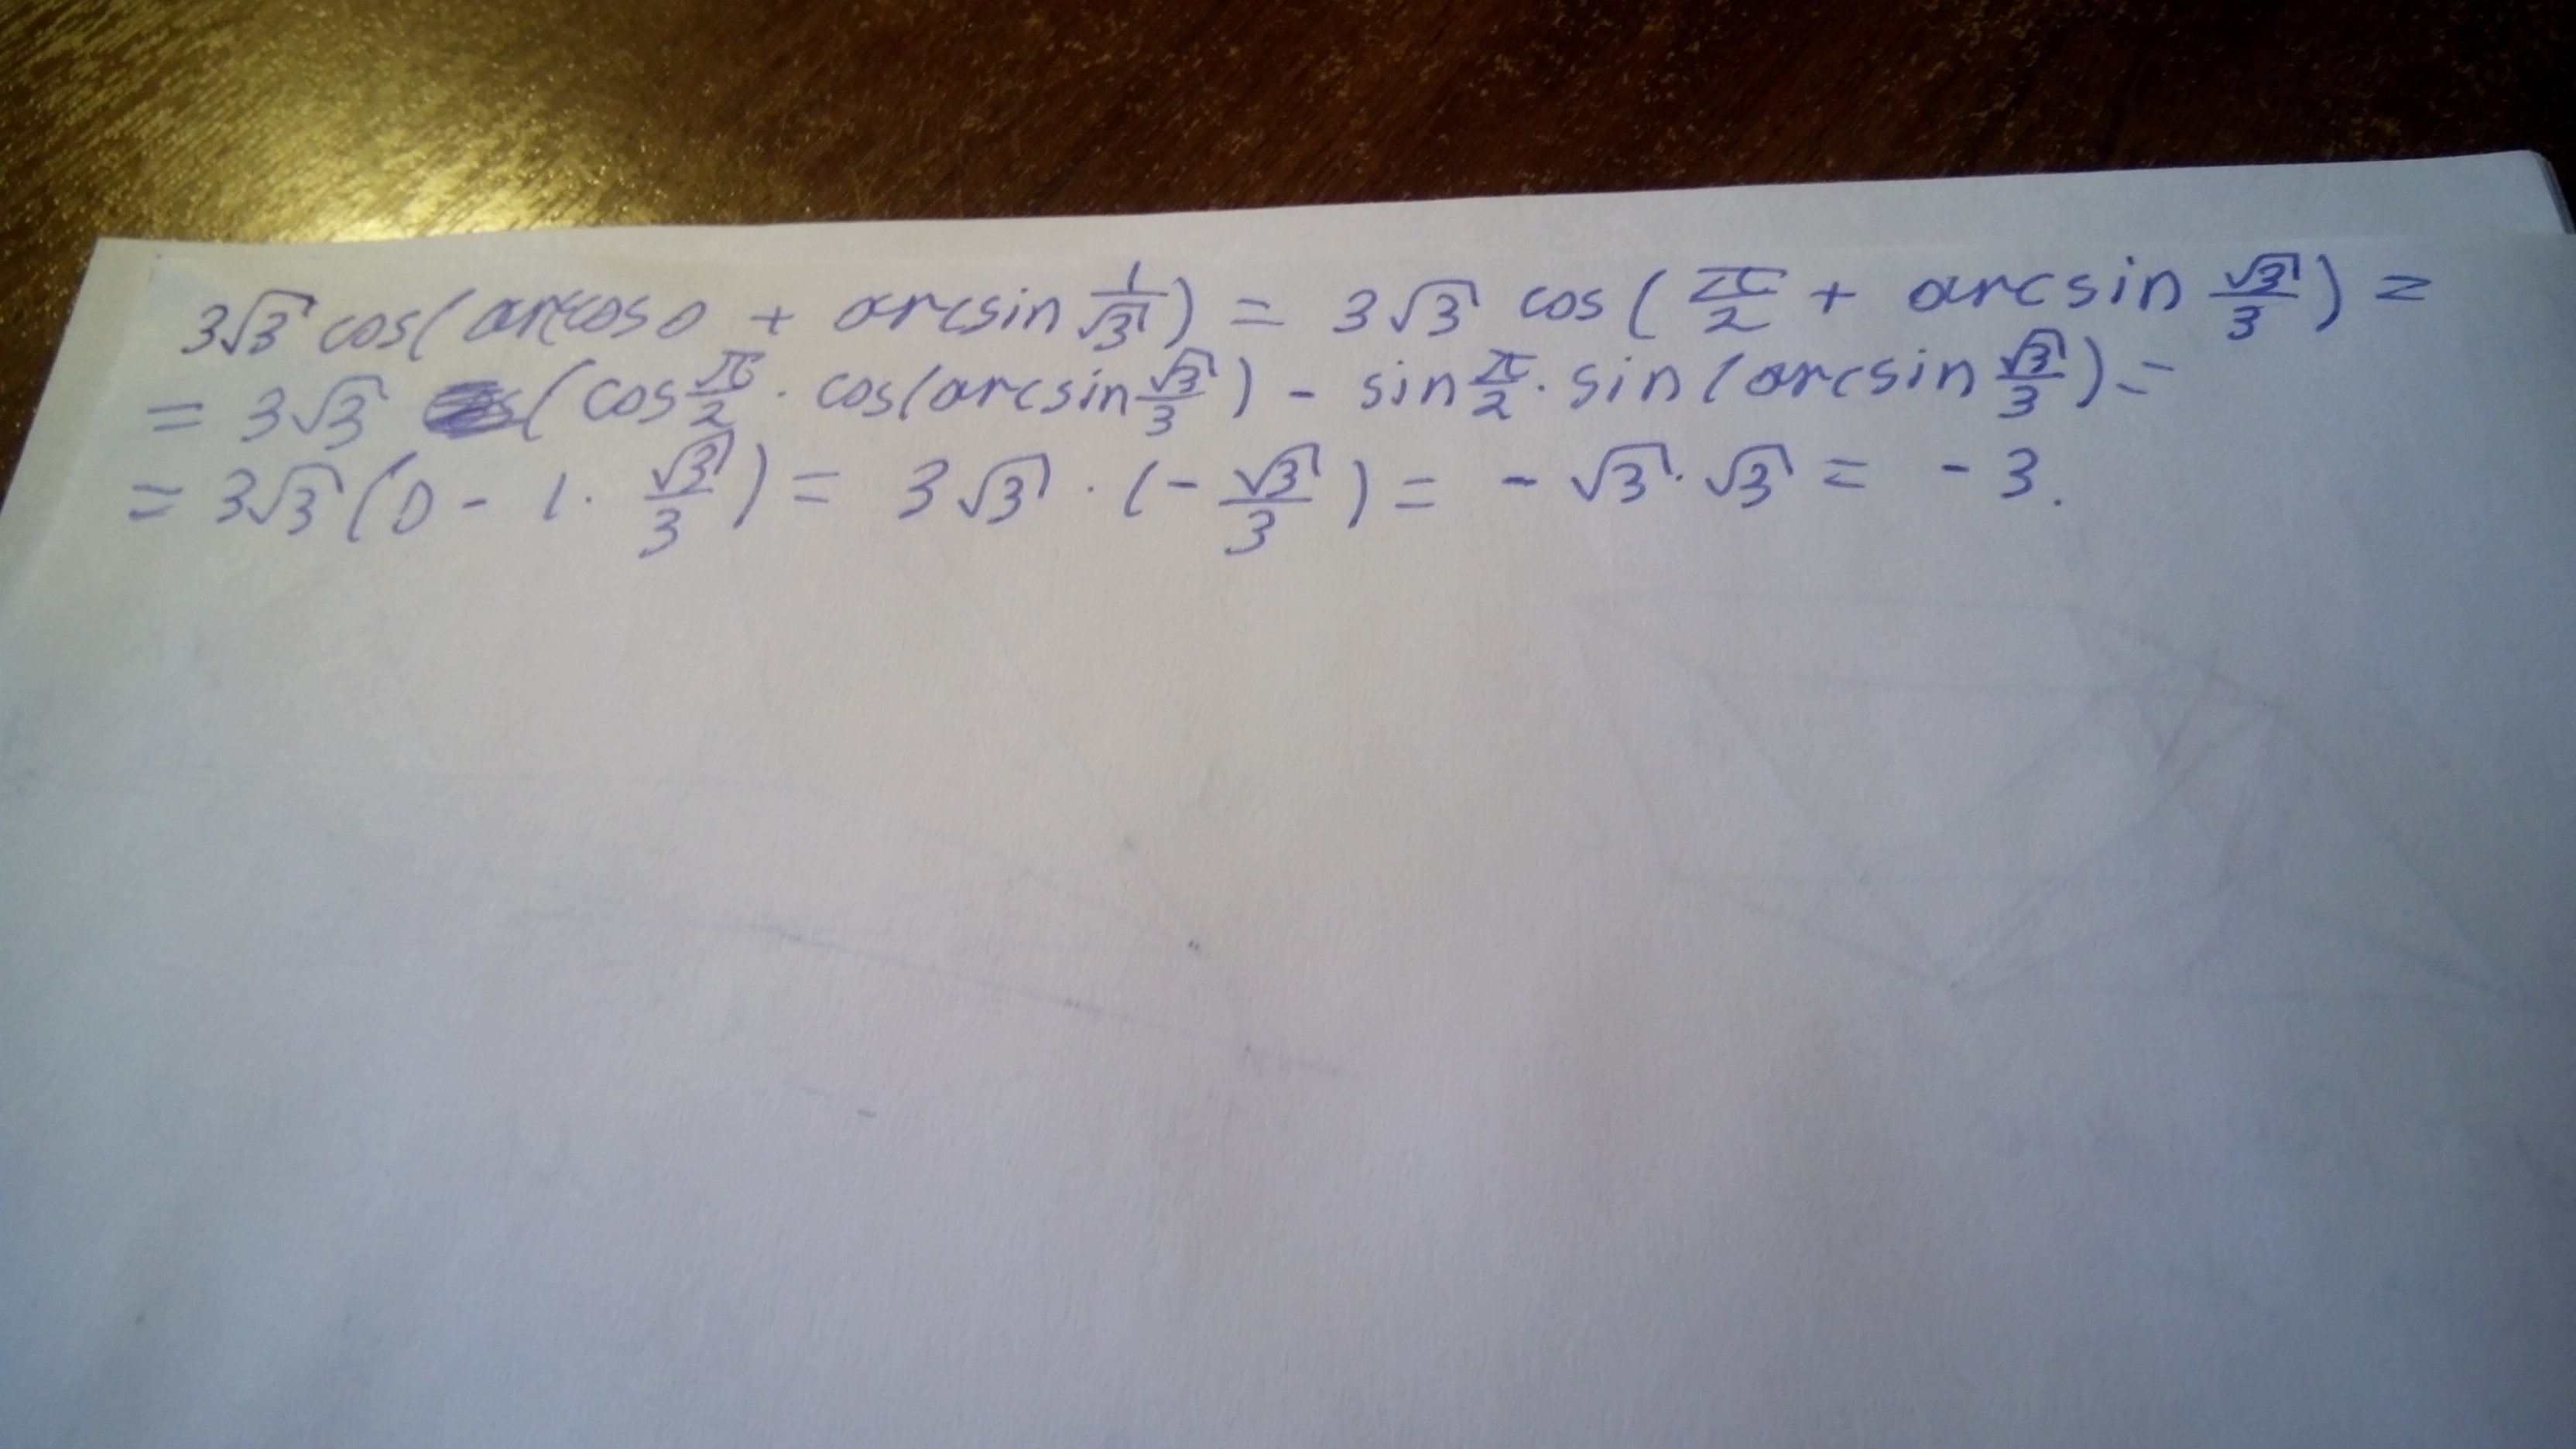 3√3 cos(arccos 0 + arcsin 1/√3) = 3√3 cos(π/2 + arcsin √3/3) =
= 3√3 (cos π/2 · cos(arcsin √3/3) - sin π/2 · sin(arcsin √3/3) =
= 3√3 (0 - 1 · √3/3) = 3√3 · (-√3/3) = -√3 · √3 = -3.